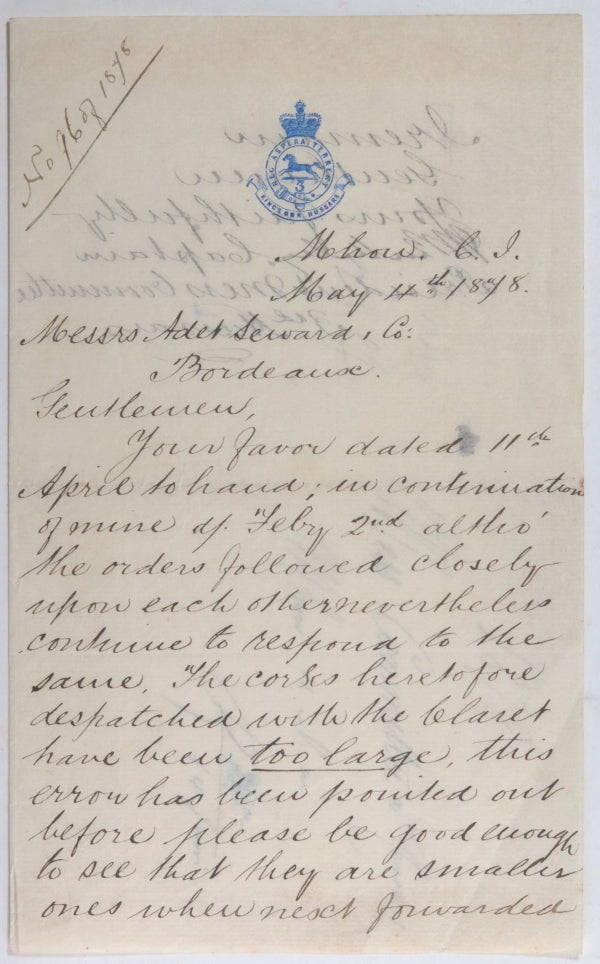 No 76 of 1878
NEC ASPERA TERRENT
3
KING'S OWN HUSSARS
Mhow. C. I.
May 4th 1878.
Messrs Adet Seward & Co:
Bordeaux.
Gentlemen,
Your favor dated 11th
April to hand; in continuation
of mine of Feby 2nd altho'
the orders followed closely
upon each other nevertheless
continue to respond to the
same. The corks heretofore
despatched with the Claret
have been too large, this
error has been pointed out
before please be good enough
to see that they are smaller
ones when next forwarded